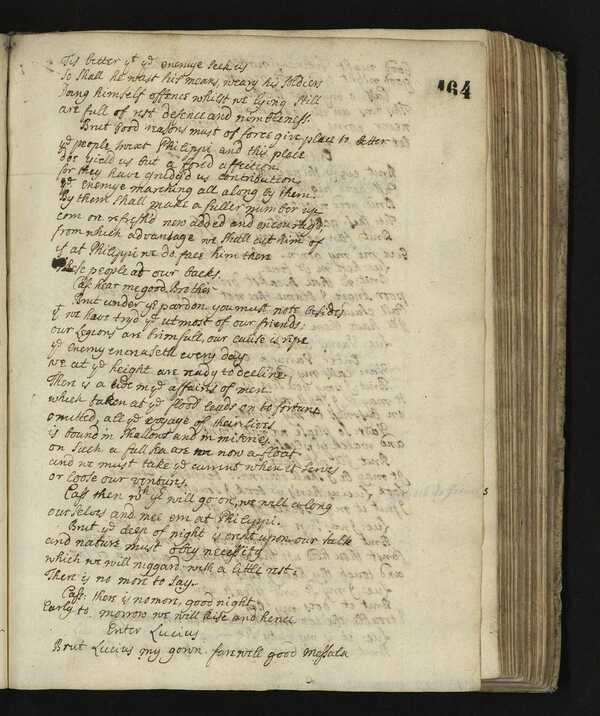 464
Tis better yt ye enemye seek us
So shall he wast his means, weary his soldiers
Doing himself offence whilst we lying still
are full of rest defence and nimbleness.
Brut good reasons must of force give place to better
ye people twixt Philippi and this place
doe yield us but a forcd affection
for they have grudgd us contribution
ye enemye marching all along by them
By them shall make a fuller number up
com on refreshd new added and encouragd
from which advantage we shall cut him of
if at Philippi we do face him there
These people at our backs.
Cass hear me good Brother
Brut under ye pardon. you must note besides
yt we have tryd ye utmost of our friends:
our Legions are brimfull, our cause is ripe
ye enemy encreaseth every day
we at ye height are ready to decline
Ther is a tide in ye affairs of men
which taken at ye flood leads on to fortune
omitted, all ye voyage of their lives
is bound in shallows and in miseries
on such a full sea are we now a float
and we must take ye current when it serves
or loose our ventuirs.
Cass then wth ye will go on, we will along
ourselves and mee em at Philippi.
Brut ye deep of night is crept upon our talk
and nature must obey necessity
which we will niggard with a little rest,
Ther is no more to say.
Cass: there is no more, good night
Early to morrow we will rise and hence
Enter Lucius
Brut Lucius my gown. farewell good Messala